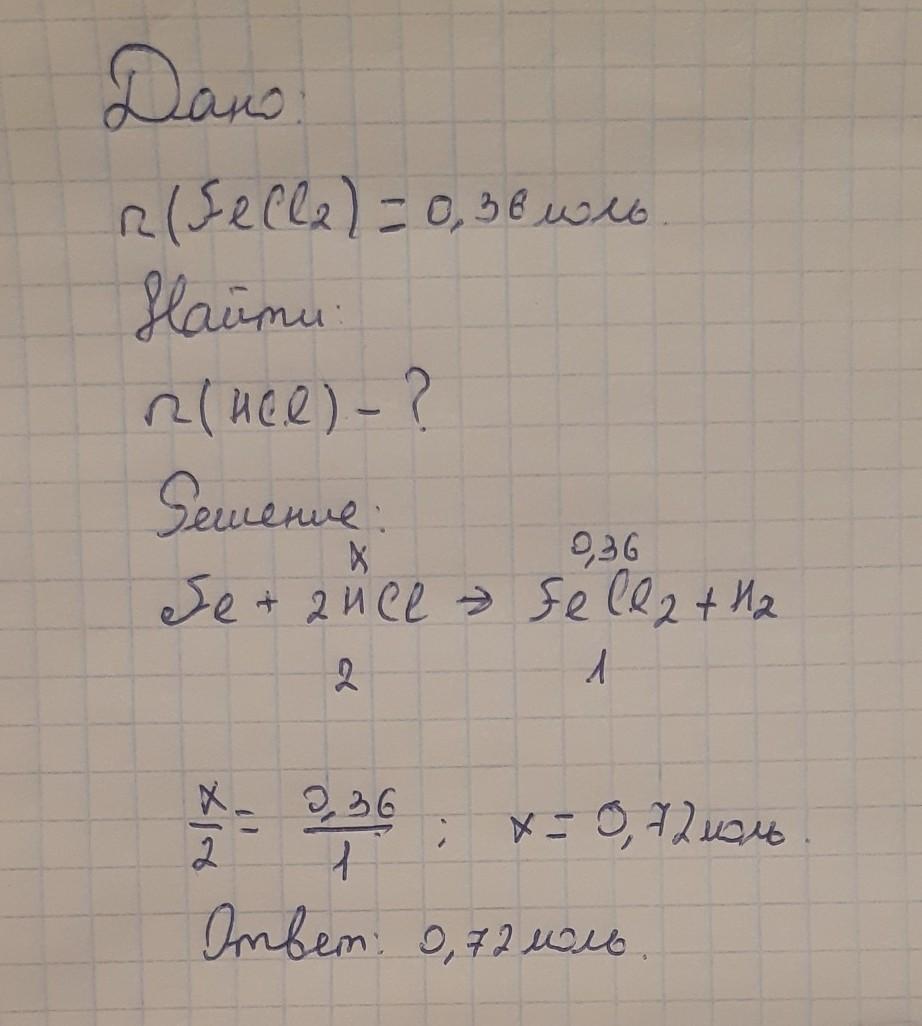 Дано:
n(FeCl2) = 0,36 моль.
Найти:
n(HCl) - ?
Решение:
x 0,36
Fe + 2HCl → FeCl2 + H2
2 1
x/2 = 0,36/1 ; x = 0,72 моль.
Ответ: 0,72 моль.